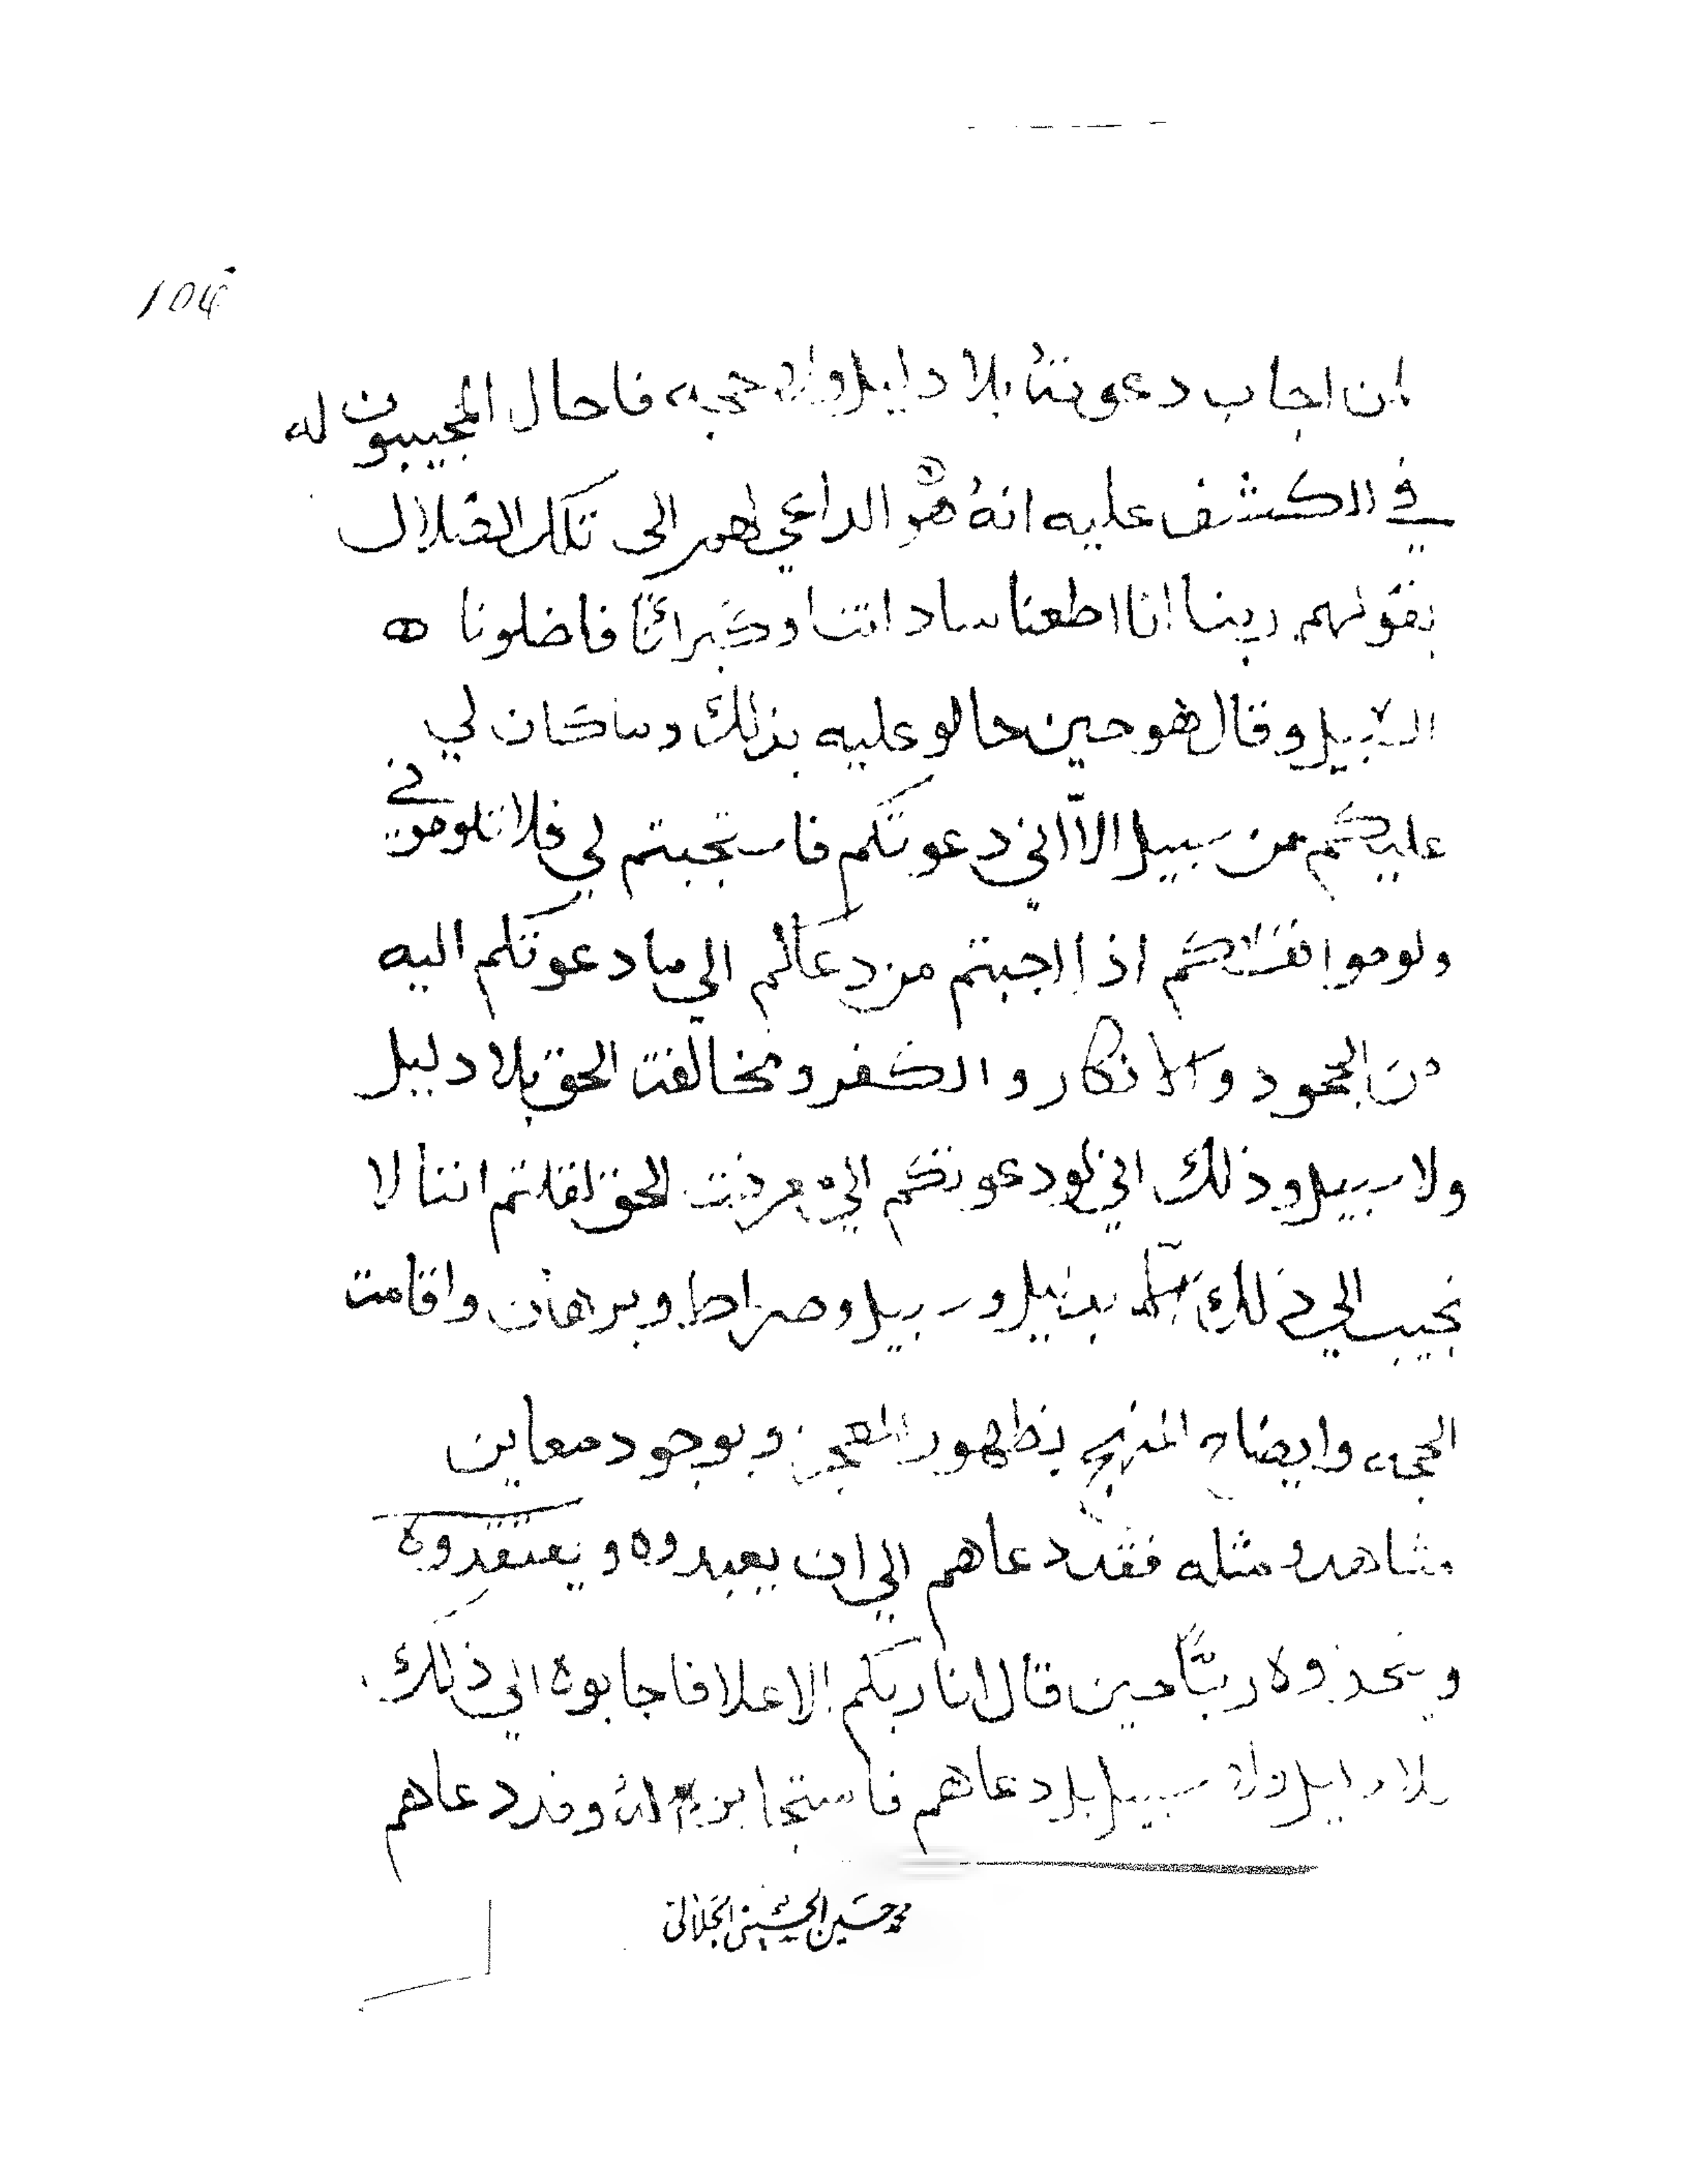 104
لمن اجاب دعوته بلا دليل ولا حجه فاحال المجيبون له
في الكشف عليه انهُ هو الداعي لهم الى تلك الضلال
بقولهم ربنا انا اطعنا ساداتنا وكبرائنا فاضلونا
السبيل وقال هو حين حالو عليه بذلك وما كان لي
عليكم من سبيل الا اني دعوتكم فاستجبتم لي فلا تلوموني
ولوموا انفسكم اذا اجبتم من دعاكم الي ما دعوتكم اليه
من الجحود والانكار والكفر ومخالفت الحق بلا دليل
ولا سبيل وذلك اني لو دعوتكم الي معرفت الحق لقلتم اننا لا
نجيب الي ذلك بدليل وسبيل وصراط وبرهان واقامت
الحجه وايضاح المنهج بظهور المعجز وبوجود معاين
مشاهد ومثله فقد دعاهم الي ان يعبدوه ويعتقدوه
ويتخذوه ربًّا حين قال انا ربكم الاعلا فاجابوه الي ذلك
بلا دليل ولا سبيل بل دعاهم فاستجابو له وقد دعاهم
محمد حسين الحسيني الجلالي